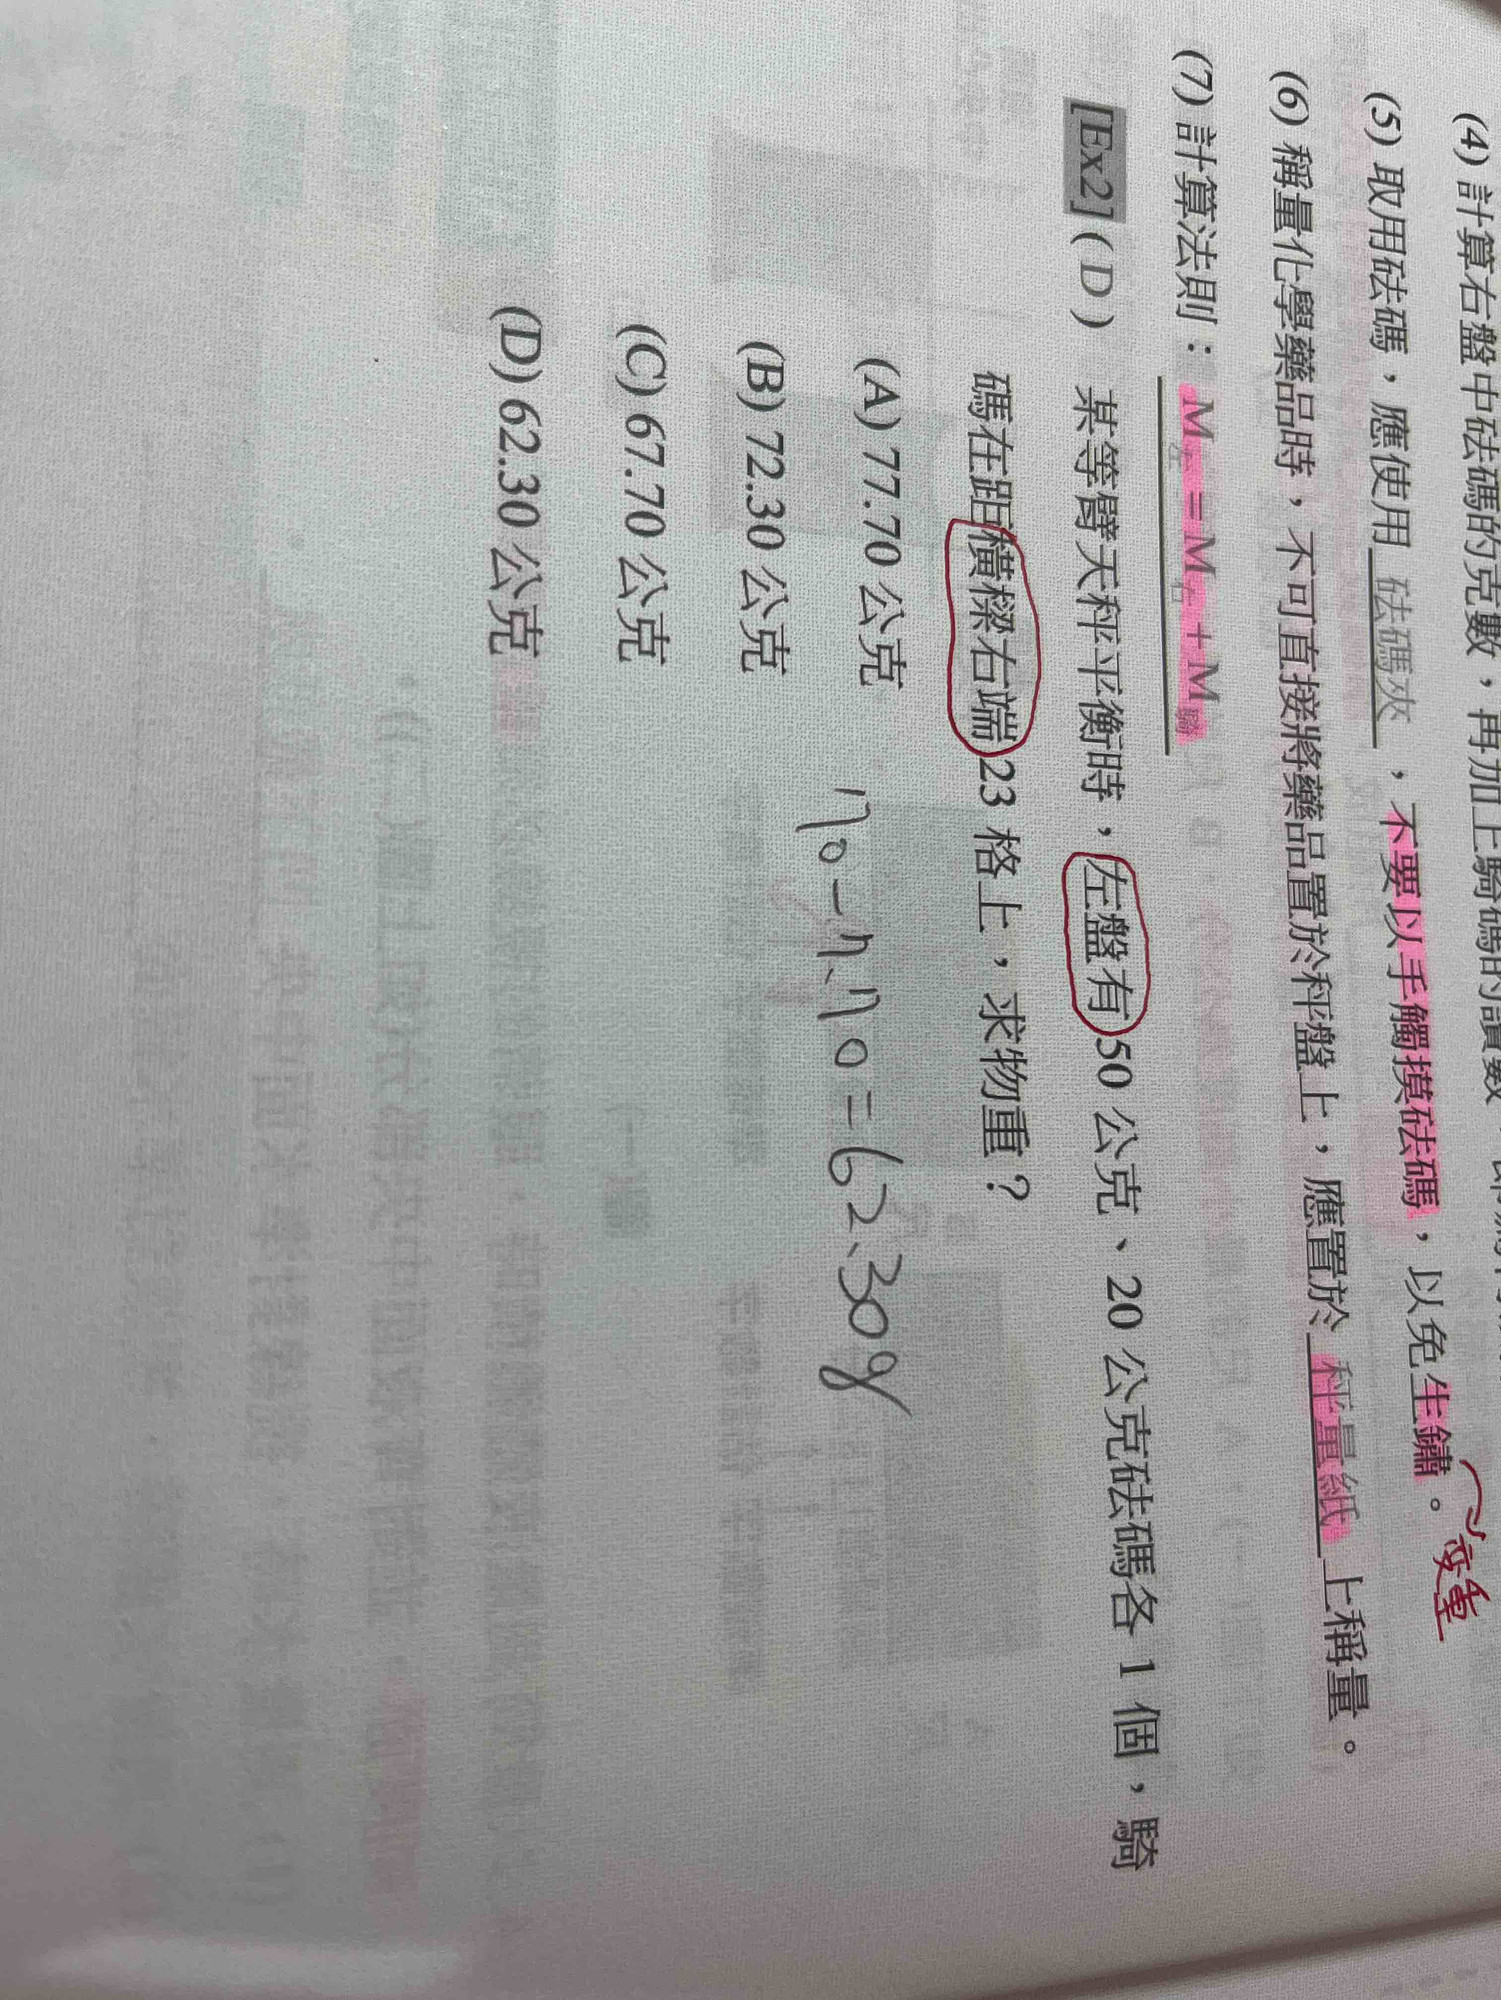 (4) 計算右盤中砝碼的克數，再加上騎碼的讀數
(5) 取用砝碼，應使用 砝碼夾 ，不要以手觸摸砝碼，以免生鏽。
變重
(6) 稱量化學藥品時，不可直接將藥品置於秤盤上，應置於 秤量紙 上稱量。
(7) 計算法則： M左＝M右＋M騎
[Ex2] ( D ) 某等臂天秤平衡時，左盤有 50 公克、20 公克砝碼各 1 個，騎
碼在距橫樑右端 23 格上，求物重？
(A) 77.70 公克
70-7.70=62.30g
(B) 72.30 公克
(C) 67.70 公克
(D) 62.30 公克